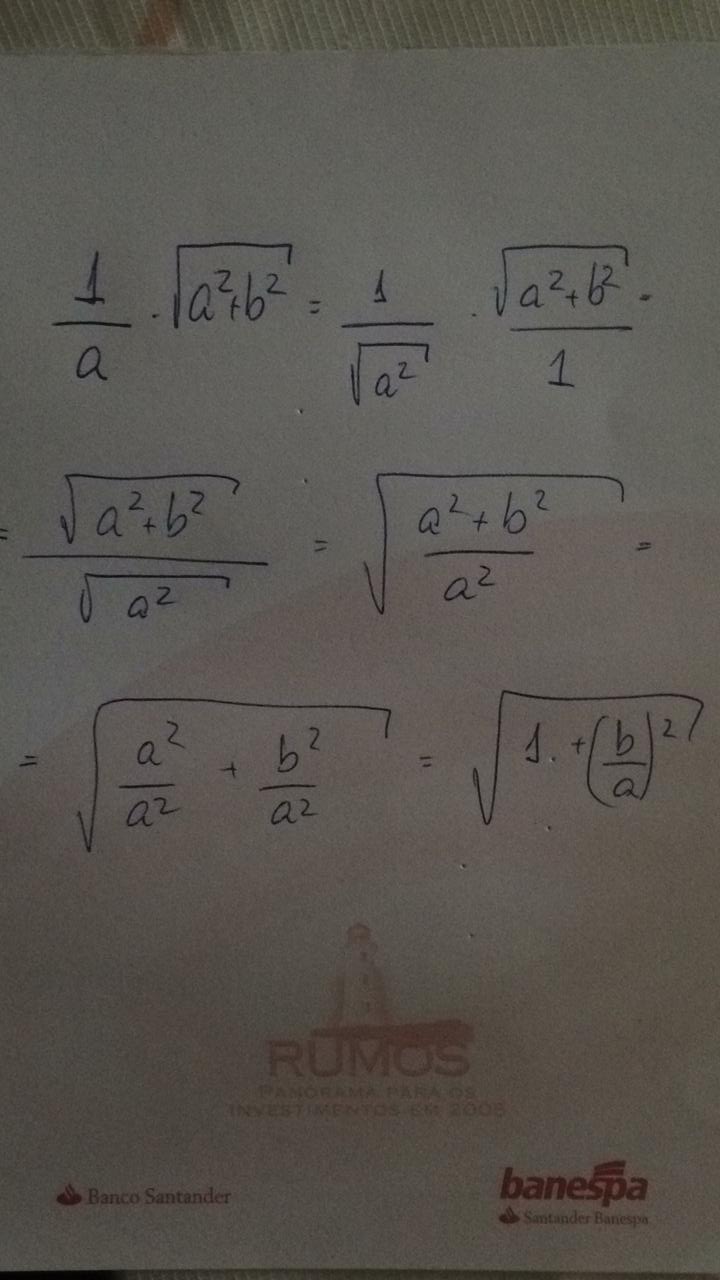 1/a · √(a²+b²) = 1/√(a²) · √(a²+b²)/1 =
= √(a²+b²)/√(a²) = √((a²+b²)/a²) =
= √(a²/a² + b²/a²) = √(1. + (b/a)²)
RUMOS
PANORAMA PARA OS
INVESTIMENTOS EM 2005
Banco Santander
banespa
Santander Banespa